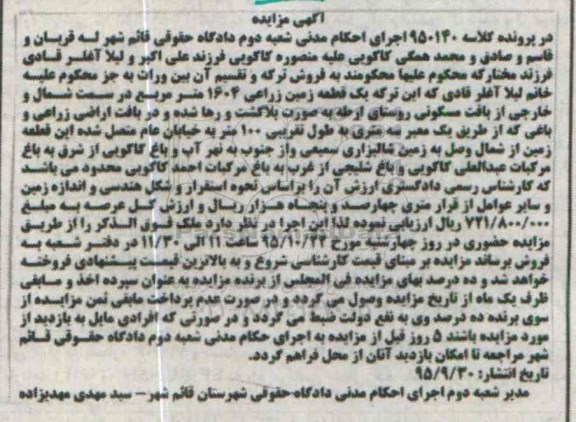 آگهی مزایده
در پرونده کلاسه ۹۵۰۱۴۰ اجرای احکام مدنی شعبه دوم دادگاه حقوقی قائم شهر له قربان و
قاسم و صادق و محمد همگی کاکویی علیه منصوره کاکویی فرزند علی اکبر و لیلا آغلر قادی
فرزند مختارکه محکوم علیها محکومند به فروش ترکه و تقسیم آن بین وراث به جز محکوم علیه
خانم لیلا آغلر قادی که این ترکه یک قطعه زمین زراعی ۱۶۰۴ متر مربع در سمت شمال و
خارجی از بافت مسکونی روستای ارطه به صورت بلاکشت و رها شده و در بافت اراضی زراعی و
باغی که از طریق یک معبر سه متری به طول تقریبی ۱۰۰ متر به خیابان عام متصل شده این قطعه
زمین از شمال وصل به زمین شالیزاری سمیعی واز جنوب به نهر آب و باغ کاکویی از شرق به باغ
مرکبات عبدالعلی کاکویی و باغ شلیجی از غرب به باغ مرکبات احمد کاکویی محدود می باشد
که کارشناس رسمی دادگستری ارزش آن را براساس نحوه استقرار و شکل هندسی و اندازه زمین
و سایر عوامل از قرار متری چهارصد و پنجاه هزار ریال و ارزش کل عرصه به مبلغ
۷۲۱/۸۰۰/۰۰۰ ریال ارزیابی نموده لذا این اجرا در نظر دارد ملک فوق الذکر را از طریق
مزایده حضوری در روز چهارشنبه مورخ ۹۵/۱۰/۲۲ ساعت ۱۱ الی ۱۱/۳۰ در دفتر شعبه به
فروش برساند مزایده بر مبنای قیمت کارشناسی شروع و به بالاترین قیمت پیشنهادی فروخته
خواهد شد و ده درصد بهای مزایده فی المجلس از برنده مزایده به عنوان سپرده اخذ و مابقی
ظرف یک ماه از تاریخ مزایده وصول می گردد و در صورت عدم پرداخت مابقی ثمن مزایده از
سوی برنده ده درصد وی به نفع دولت ضبط می گردد و در صورتی که افرادی مایل به بازدید از
مورد مزایده باشند ۵ روز قبل از مزایده به اجرای حکام مدنی شعبه دوم دادگاه حقوقی قائم
شهر مراجعه تا امکان بازدید آنان از محل فراهم گردد.
تاریخ انتشار: ۹۵/۹/۳۰
مدیر شعبه دوم اجرای احکام مدنی دادگاه حقوقی شهرستان قائم شهر – سید مهدی مهدیزاده